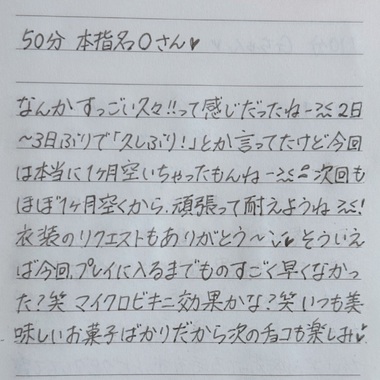 50分 本指名Oさん♥
なんかすっごい久々!!って感じだったねー 2日
～3日ぶりで「久しぶり!」とか言ってたけど今回
は本当に1ヶ月空いちゃったもんねー 次回も
ほぼ1ヶ月空くから、頑張って耐えようね!
衣装のリクエストもありがとう～♥そういえ
ば今回、プレイに入るまでものすごく早くなかっ
た?笑 マイクロビキニ効果かな?笑 いつも美
味しいお菓子ばかりだから次のチョコも楽しみ♥